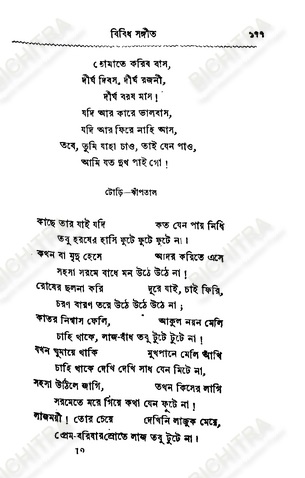 বিবিধ সঙ্গীত ১৭৭
তোমাতে করিব বাস,
দীর্ঘ দিবস, দীর্ঘ রজনী,
দীর্ঘ বরষ মাস!
যদি আর কারে ভালবাস,
যদি আর ফিরে নাহি আস,
তবে, তুমি যাহা চাও, তাই যেন পাও,
আমি যত দুখ পাই গো!
টোড়ি—ঝাঁপতাল
কাছে তার যাই যদি কত যেন পায় নিধি
তবু হরষের হাসি ফুটে ফুটে ফুটে না।
কখন বা মৃদু হেসে আদর করিতে এসে
সহসা সরমে বাধে মন উঠে উঠে না!
রোষের ছলনা করি দূরে যাই, চাই ফিরি,
চরণ বারণ তরে উঠে উঠে উঠে না;
কাতর নিশ্বাস ফেলি, আকুল নয়ন মেলি
চাহি থাকে, লাজ-বাঁধ তবু টুটে টুটে না!
যখন ঘুমায়ে থাকি মুখপানে মেলি আঁখি
চাহি থাকে দেখি দেখি সাধ যেন মিটে না,
সহসা উঠিলে জাগি, তখন কিসের লাগি
সরমেতে মরে গিয়ে কথা যেন ফুটে না!
লাজময়ী! তোর চেয়ে দেখিনি লাজুক মেয়ে,
প্রেম-বরিষার স্রোতে লাজ তবু টুটে না।
BICHITRA